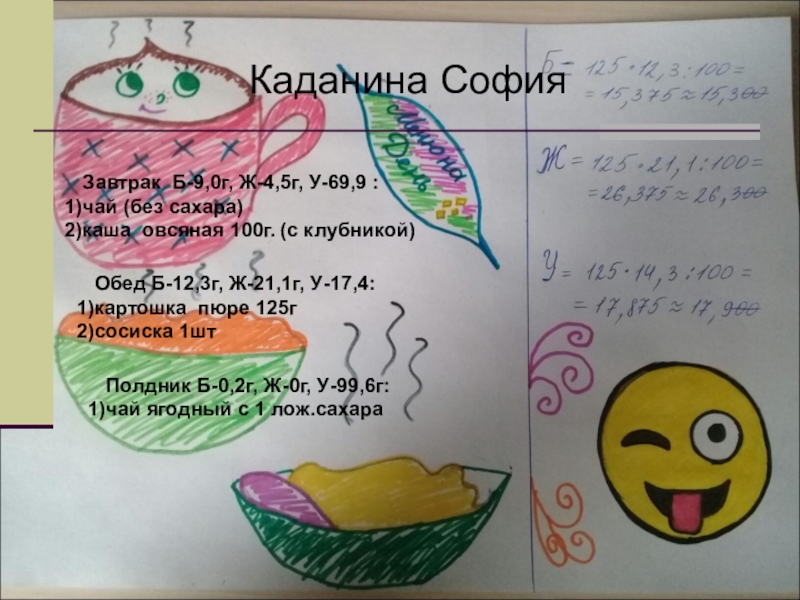 Каданина София
Меню на
День
Завтрак Б-9,0г, Ж-4,5г, У-69,9 :
1)чай (без сахара)
2)каша овсяная 100г. (с клубникой)
Обед Б-12,3г, Ж-21,1г, У-17,4:
1)картошка пюре 125г
2)сосиска 1шт
Полдник Б-0,2г, Ж-0г, У-99,6г:
1)чай ягодный с 1 лож.сахара
Б = 125·12,3:100=
=15,375≈15,300
Ж = 125·21,1:100=
=26,375≈26,300
У = 125·14,3:100=
=17,875≈17,900